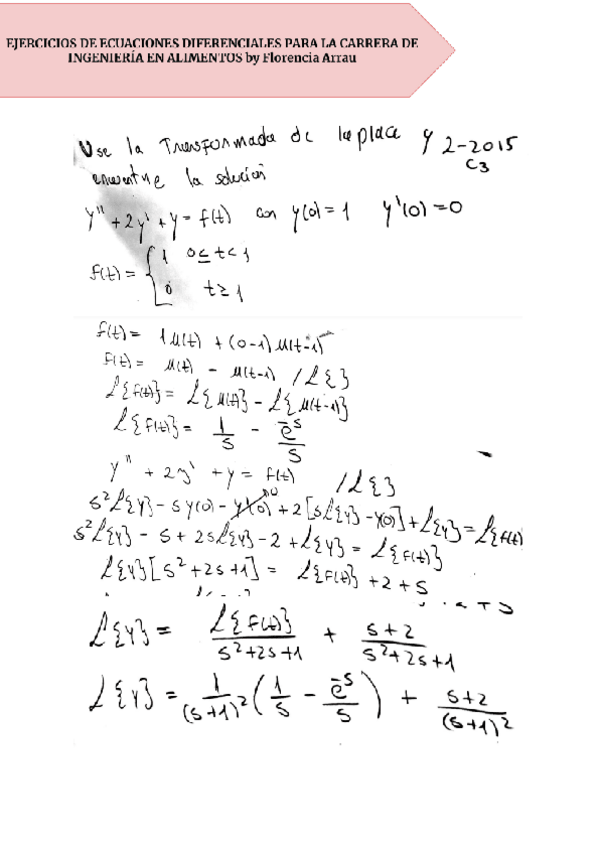 EJERCICIOS DE ECUACIONES DIFERENCIALES PARA LA CARRERA DE
INGENIERÍA EN ALIMENTOS by Florencia Arrau
Use la Transformada de Laplace y 2-2015
encuentre la solución C3
y'' + 2y' + y = f(t) con y(0) = 1 y'(0) = 0
f(t) = { 1 0 ≤ t < 1
0 t ≥ 1
f(t) = 1 μ(t) + (0-1) μ(t-1)
f(t) = μ(t) - μ(t-1) / ℒ{ }
ℒ{f(t)} = ℒ{μ(t)} - ℒ{μ(t-1)}
ℒ{f(t)} = 1/s - e^-s/s
y'' + 2y' + y = f(t) / ℒ{ }
s²ℒ{y} - s y(0) - y'(0) + 2[sℒ{y} - y(0)] + ℒ{y} = ℒ{f(t)}
s²ℒ{y} - s + 2sℒ{y} - 2 + ℒ{y} = ℒ{f(t)}
ℒ{y}[s² + 2s + 1] = ℒ{f(t)} + 2 + s
ℒ{y} = ℒ{f(t)}/(s² + 2s + 1) + (s + 2)/(s² + 2s + 1)
ℒ{y} = 1/(s+1)² (1/s - e^-s/s) + (s + 2)/(s+1)²